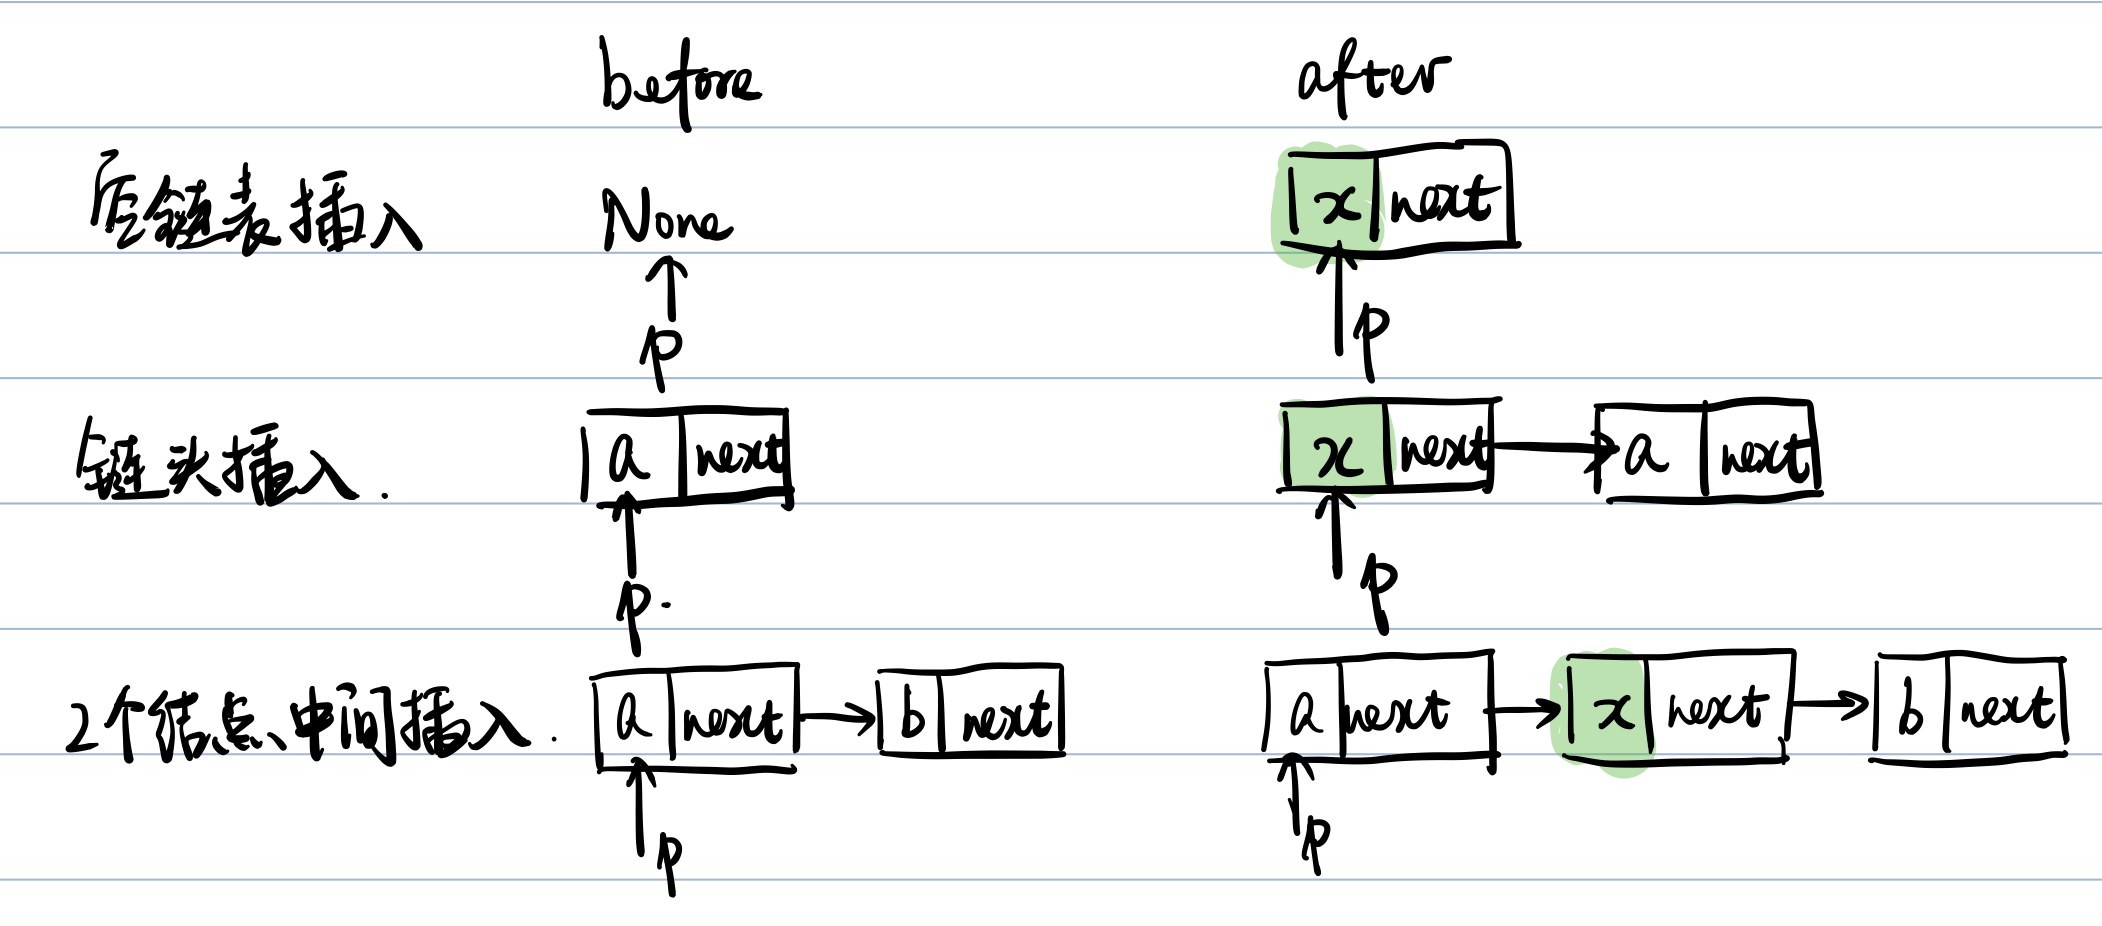 before after
后链表插入 None x next
p p
链头插入. a next x next a next
p. p
2个结点、中间插入. a next b next a next x next b next
p p